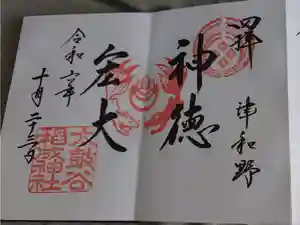 拝
津和野
神徳
宏大
令和六年
十月二十三日
太皷谷
稲成神社